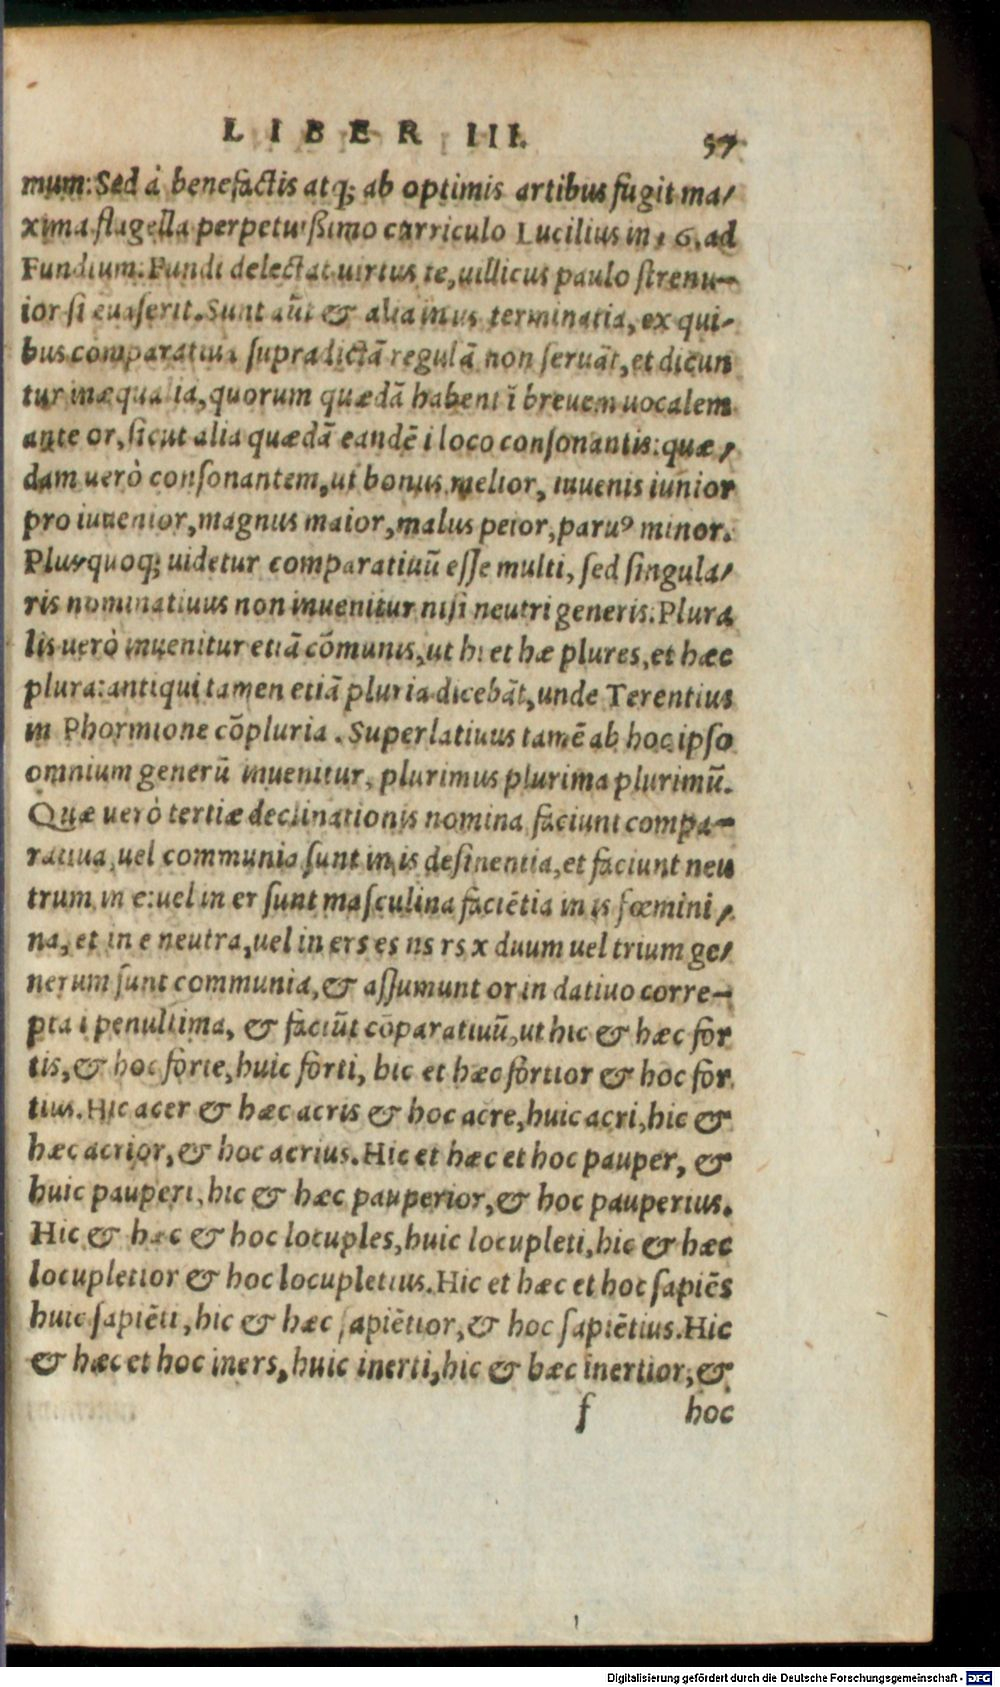 LIBER III. 57
mum: Sed à benefactis atq; ab optimis artibus fugit ma/
xima flagella perpetuissimo curriculo Lucilius in 16. ad
Fundium. Fundi delectat uirtus te, uillicus paulo strenu-
ior si euaserit. Sunt aūt & alia in us terminatia, ex qui-
bus comparatiua supradictā regulā non seruāt, et dicun
tur inæqualia, quorum quædā habent ī breuem uocalem
ante or, sicut alia quædā eandē i loco consonantis: quæ/
dam uerò consonantem, ut bonus melior, iuuenis iunior
pro iuuenior, magnus maior, malus peior, paruꝰ minor.
Plus quoq; uidetur comparatiuū esse multi, sed singula/
ris nominatiuus non inuenitur nisi neutri generis. Plura
lis uerò inuenitur etiā cōmunis, ut hi et hæ plures, et hæc
plura: antiqui tamen etiā pluria dicebāt, unde Terentius
in Phormione cōpluria. Superlatiuus tamē ab hoc ipso
omnium generū inuenitur, plurimus plurima plurimū.
Quæ uerò tertiæ declinationis nomina faciunt compa-
ratiua, uel communia sunt in is desinentia, et faciunt neu
trum in e: uel in er sunt masculina faciētia in is fœmini/
na, et in e neutra, uel in ers es ns rs x duum uel trium ge/
nerum sunt communia, & assumunt or in datiuo corre-
pta i penultima, & faciūt cōparatiuū, ut hic & hæc for
tis, & hoc forte, huic forti, hic et hæc fortior & hoc for
tius. Hic acer & hæc acris & hoc acre, huic acri, hic &
hæc acrior, & hoc acrius. Hic et hæc et hoc pauper, &
huic pauperi, hic & hæc pauperior, & hoc pauperius.
Hic & hæc & hoc locuples, huic locupleti, hic & hæc
locupletior & hoc locupletius. Hic et hæc et hoc sapiēs
huic sapiēti, hic & hæc sapiētior, & hoc sapiētius. Hic
& hæc et hoc iners, huic inerti, hic & hæc inertior, &
f hoc
Digitalisierung gefördert durch die Deutsche Forschungsgemeinschaft - DFG